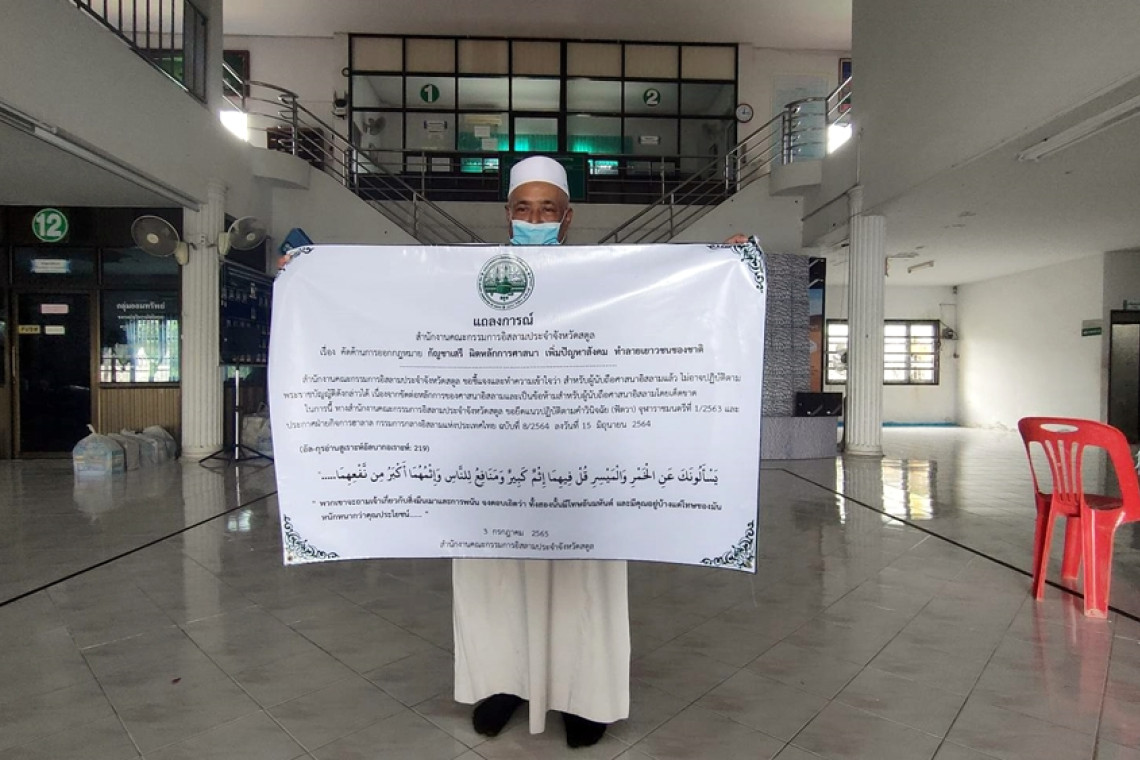 1
2
12
กลุ่มออมทรัพย์
แถลงการณ์
สำนักงานคณะกรรมการอิสลามประจำจังหวัดสตูล
เรื่อง คัดค้านการออกกฎหมาย กัญชาเสรี ผิดหลักการศาสนา เพิ่มปัญหาสังคม ทำลายเยาวชนของชาติ
สำนักงานคณะกรรมการอิสลามประจำจังหวัดสตูล ขอชี้แจงและทำความเข้าใจว่า สำหรับผู้นับถือศาสนาอิสลามแล้ว ไม่อาจปฏิบัติตาม
พระราชบัญญัติดังกล่าวได้ เนื่องจากขัดต่อหลักการของศาสนาอิสลามและเป็นข้อห้ามสำหรับผู้นับถือศาสนาอิสลามโดยเด็ดขาด
ในการนี้ ทางสำนักงานคณะกรรมการอิสลามประจำจังหวัดสตูล ขอยึดแนวปฏิบัติตามคำวินิจฉัย (ฟัตวา) จุฬาราชมนตรีที่ 1/2563 และ
ประกาศฝ่ายกิจการฮาลาล กรรมการกลางอิสลามแห่งประเทศไทย ฉบับที่ 8/2564 ลงวันที่ 15 มิถุนายน 2564
(อัล-กุรอ่านสูเราะห์อัลบากอเราะห์: 219)
".....يَسْأَلُونَكَ عَنِ الْخَمْرِ وَالْمَيْسِرِ قُلْ فِيهِمَا إِثْمٌ كَبِيرٌ وَمَنَافِعُ لِلنَّاسِ وَإِثْمُهُمَا أَكْبَرُ مِن نَّفْعِهِمَا
" พวกเขาจะถามเจ้าเกี่ยวกับสิ่งมึนเมาและการพนัน จงตอบเถิดว่า ทั้งสองนั้นมีโทษอันมหันต์ และมีคุณอยู่บ้างแต่โทษของมัน
หนักหนากว่าคุณประโยชน์...... "
5 กรกฎาคม 2565
สำนักงานคณะกรรมการอิสลามประจำจังหวัดสตูล